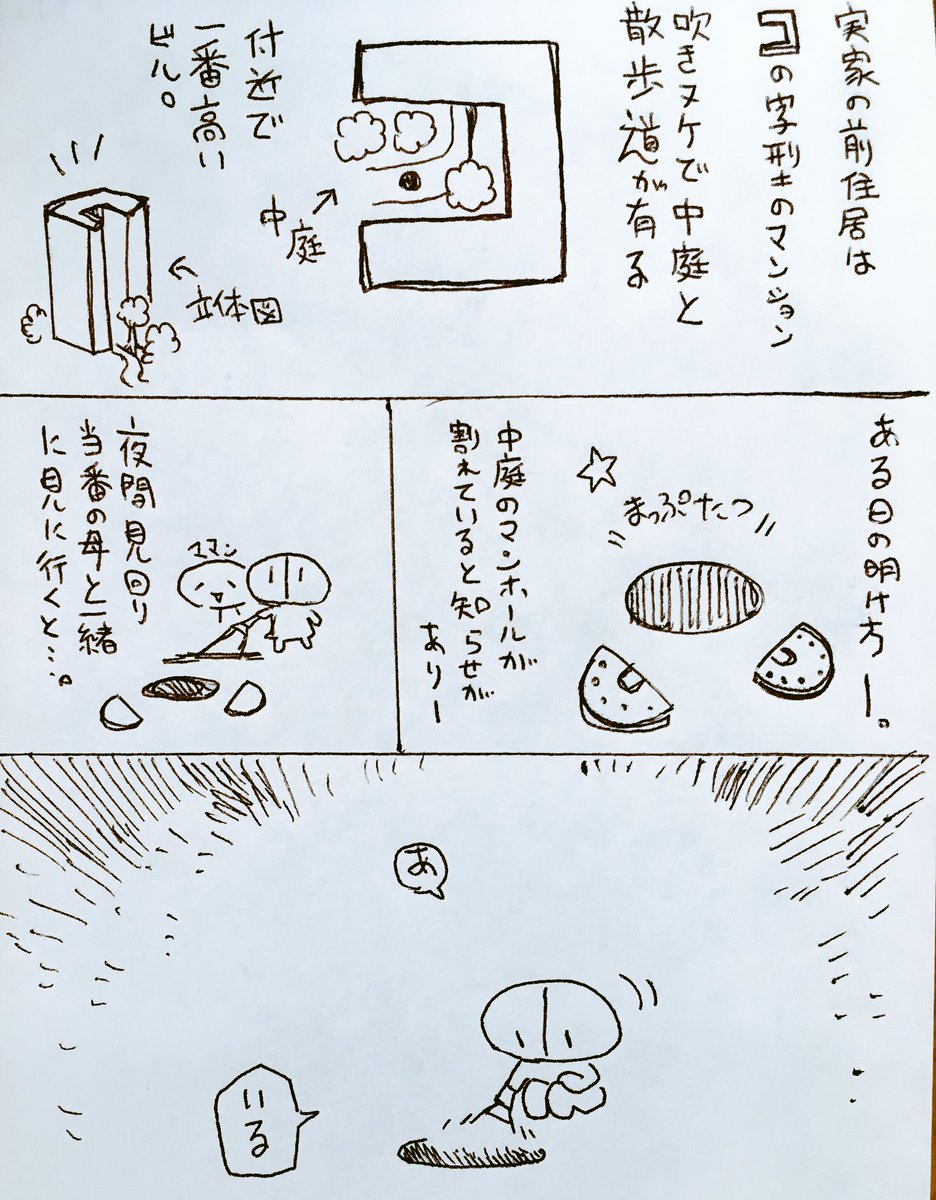 実家の前住居は
コの字型のマンション
吹きヌケで中庭と
散歩道が有る
中庭
付近で
一番高い
ビル。
立体図
ある日の明け方ー。
まっぷたつ
中庭のマンホールが
割れていると知らせが
ありー
夜間見回り
当番の母と一緒
に見に行くと…。
ママン
あ
いる